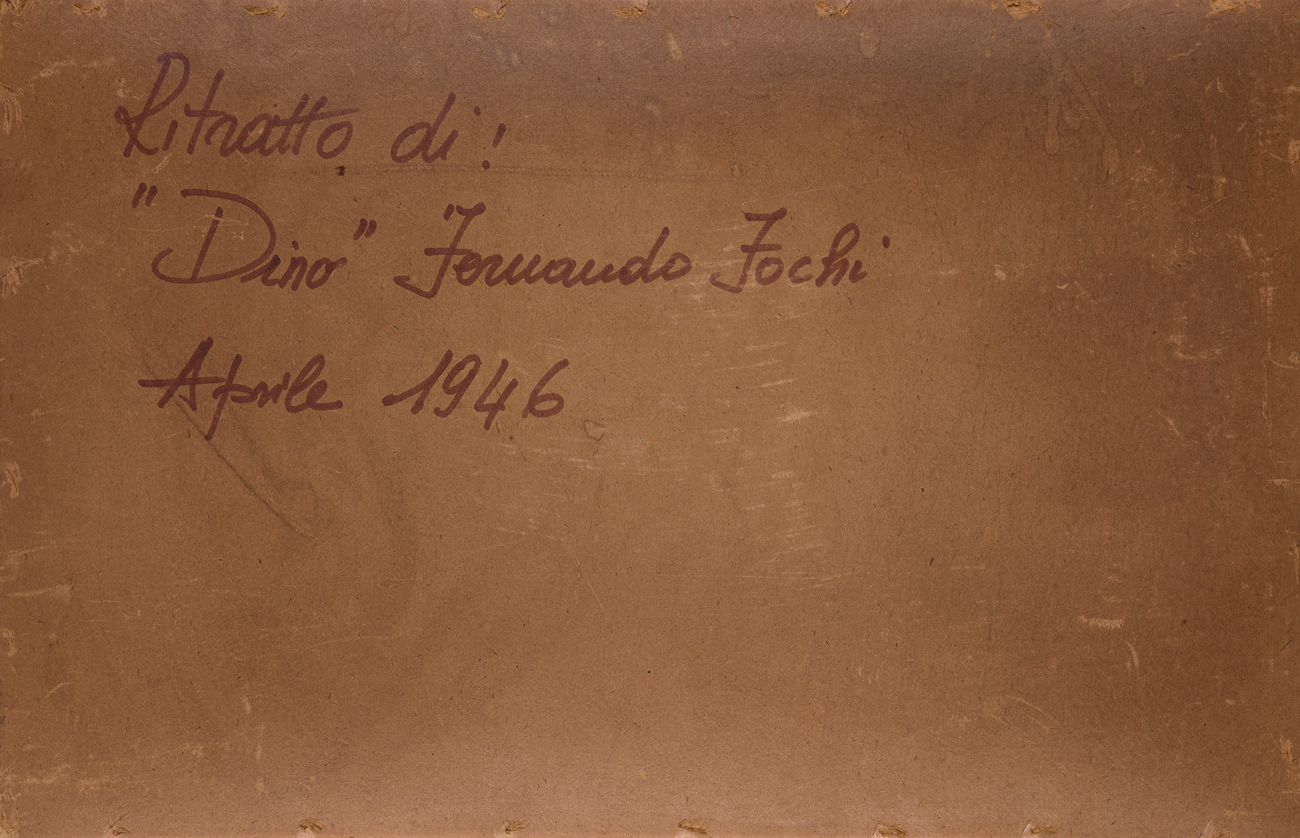 Ritratto di!
"Dino" Fernando Fochi
Aprile 1946